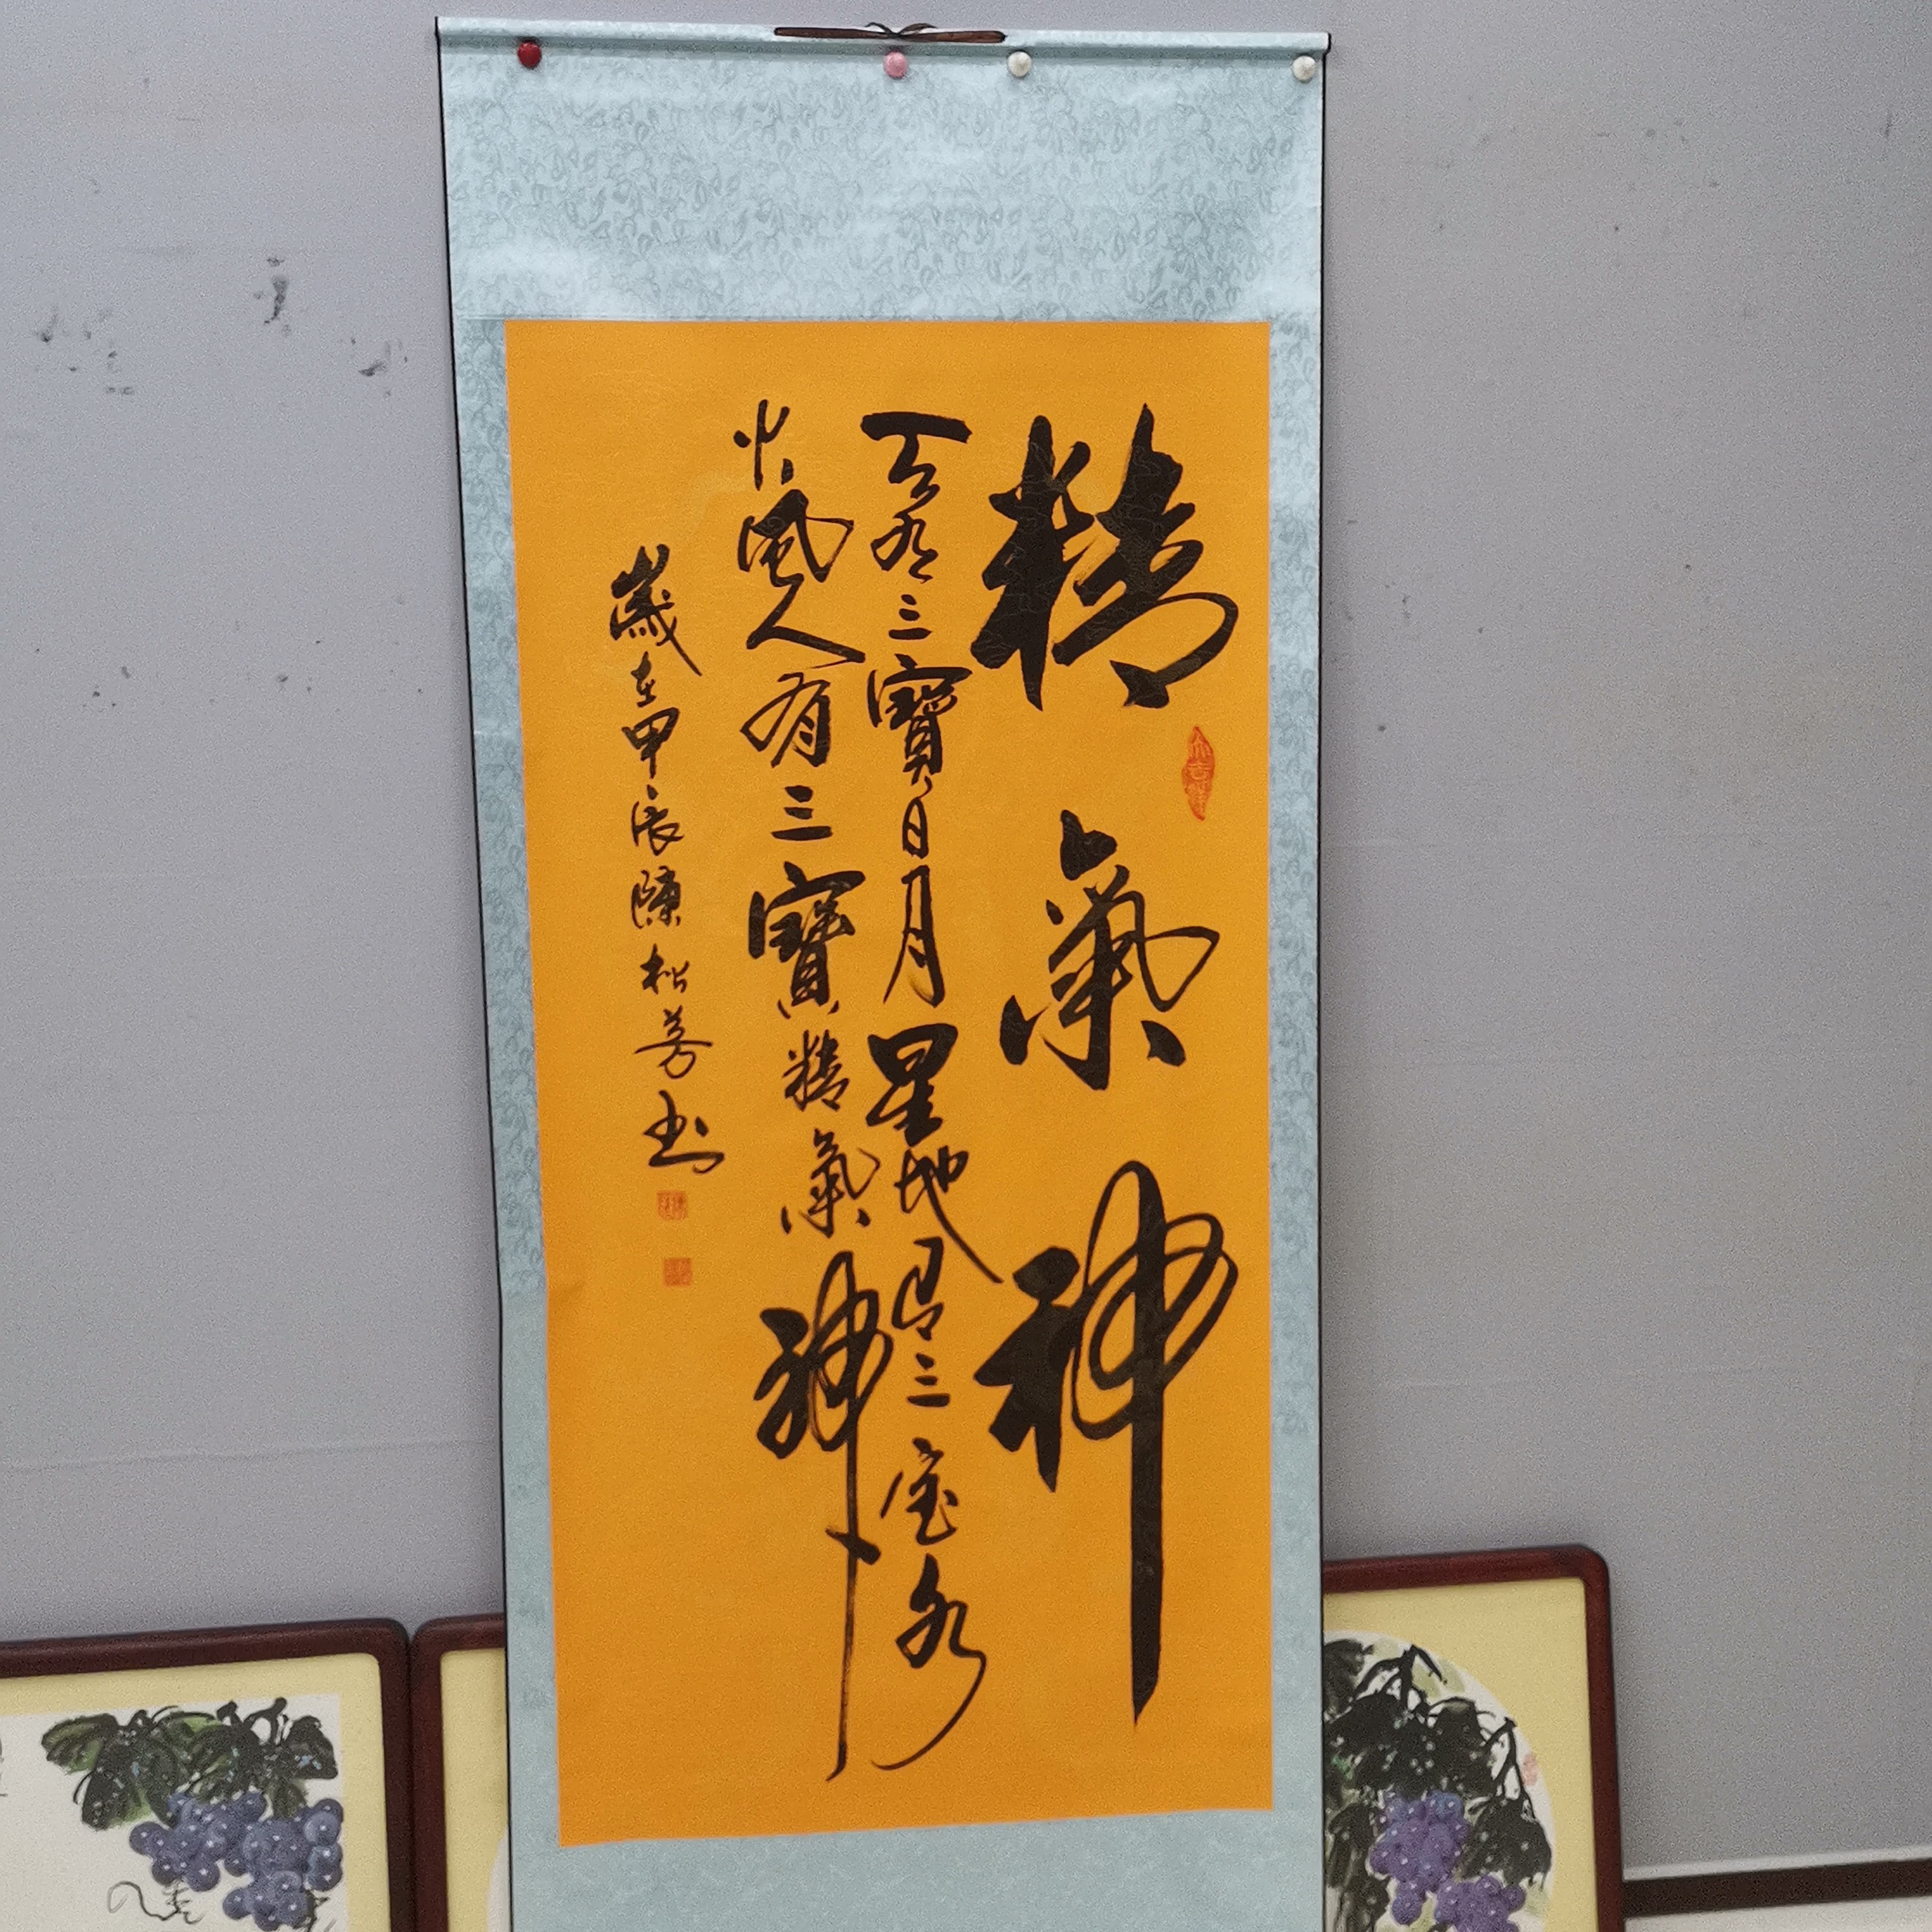 精氣神
天有三寶日月星地有三宝水
火風人有三寶精氣神
歲在甲辰陳松芳书